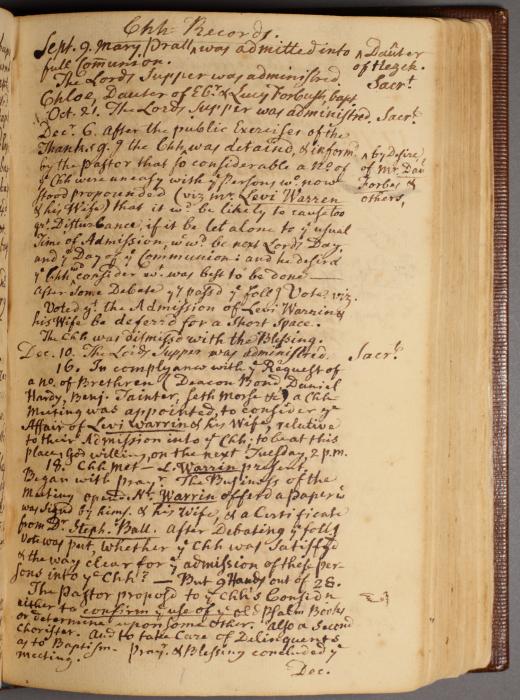 Chh Records.
Sept. 9. Mary Prall ^ was admitted into ^ Dauter
full Comunion. of Hezek.
The Lords Supper was administred. Sacrt.
Chloe, Dauter of Ebr. & Lucy Forbush, bapt
Oct. 21. The Lords Supper was administred. Sacrt.
Decr. 6. after the public Exercises of the
Thanksg.g the Chh was detained, & inform'd ^ by desire
by the pastor that so considerable a No. of of Mr. Dav
ye Chh were uneasy with ye Persons wo. now Forbes &
stood propounded (viz Mr. Levi Warren others,
& his Wife) that it wd. be likely to cause too
gr. Disturbance, if it be let alone to ye usual
Time of Admission, wc. wd. be next Lords Day,
and ye Day of ye Communion: and he desird
ye Chh wd. consider wt. was best to be done —
After Some Debate yy passd ye follg Vote. viz.
Voted yt. the Admission of Levi Warrin &
his Wife be deferrd for a Short Space.
The Chh was dismissd with the Blessing.
Dec. 10. The Lords Supper was administred. Sacrt.
16. In complyance with ye Request of
a no. of Brethren, Deacon Bond, Daniel
Hardy, Benj. Tainter, Seth Morse &c, a Chh
Meeting was appointed, to consider ye
Affair of Levi Warrin & his Wife, relative
to their Admission into ye Chh; to be at this
place, God willing, on the next Tuesday, 2 p.m.
18. Chh met — L. Warrin present,
Began with Prayr. The Business of the
Meeting opend. Mr. Warrin offerd a Paper wc.
was signd by hims. & his Wife, & a Certificate
from Dr. Steph. Ball. After Debating ye follg
Vote was put, whether ye Chh was Satisfyd
& the way clear for ye admission of these Per-
sons into ye Chh? — But 9 Hands out of 28.
The Pastor proposd to ye Chh's Considn
either to confirm ye use of ye old Psalm Books
or determine upon some other: also a Second
Chorister. And to take Care of Delinquents
as to Baptism. Prayr. & Blessing concluded ye
meeting.
Dec.